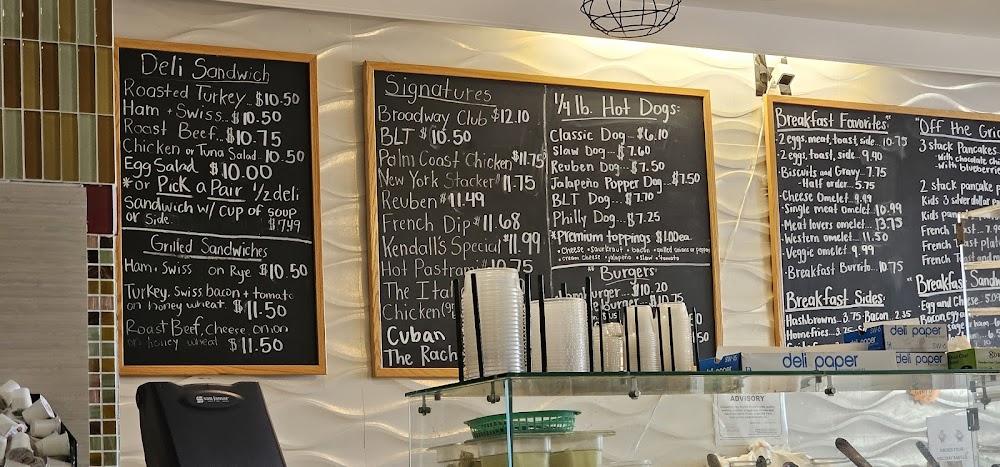 Deli Sandwich
Roasted Turkey... $10.50
Ham + Swiss... $10.50
Roast Beef.. $10.75
Chicken or Tuna Salad.. 10.50
Egg Salad $10.00
*or Pick a Pair 1/2 deli
Sandwich w/ cup of soup
or Side. $7.49
Grilled Sandwiches
Ham + Swiss on Rye $10.50
Turkey, Swiss, bacon + tomato
on honey wheat $11.50
Roast Beef, cheese, onion
on honey wheat $11.50
Signatures
Broadway Club $12.10
BLT $10.50
Palm Coast Chicken $11.75
New York Stacker $11.75
Reuben $11.49
French Dip $11.68
Kendall's Special $11.99
Hot Pastrami 10.75
The
Chicken
Cuban
The Rach
1/4 lb. Hot Dogs:
Classic Dog... $6.10
Slaw Dog... $7.60
Reuben Dog... $7.50
Jalapeño Popper Dog... $7.50
BLT Dog... $7.70
Philly Dog... $7.25
*Premium toppings $1.00 ea.
• cheese • sauerkraut • bacon • grilled onions or peppers
• cream cheese • jalapeño • slaw • tomato
"Burgers"
$10.20
$10.75
Breakfast Favorites"
• 2 eggs, meat, toast, side... 10.75
• 2 eggs, toast, side... 9.90
• Biscuits and Gravy.. 7.75
• Half order... 5.75
• Cheese Omelet. 9.99
• Single meat Omelet. 10.99
• Meat lovers omelet... 13.75
• Western omelet... 11.50
• Veggie omelet... 9.95
• Breakfast Burrito.. 10.75
Breakfast Sides
Hashbrowns.. 3.75 Bacon.. 2.35
Homefries... 3.75
"Off the Gri
3 stack Pancakes
with chocolate chi
with blueberrie
2 stack pancake
Kids 3 silver dollar pa
Kids pan
French Toast.. 7.9
French Toast
French
Breakfast Sand
Egg and Cheese.. 5.0
Bacon, egg
deli paper
deli paper
deli paper
SW-6
ADVISORY